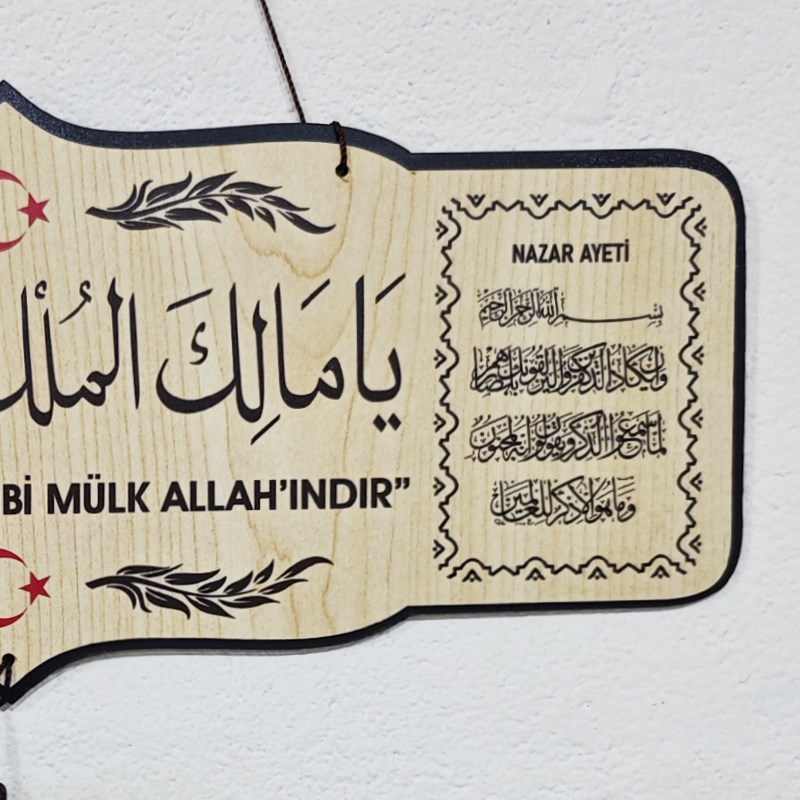 يَا مَالِكَ الْمُلْك
Bİ MÜLK ALLAH'INDIR”
NAZAR AYETİ
بسم الله الرحمن الرحيم
وان يكاد الذين كفروا ليزلقونك بابصارهم
لما سمعوا الذكر ويقولون انه لمجنون
وما هو الا ذكر للعالمين